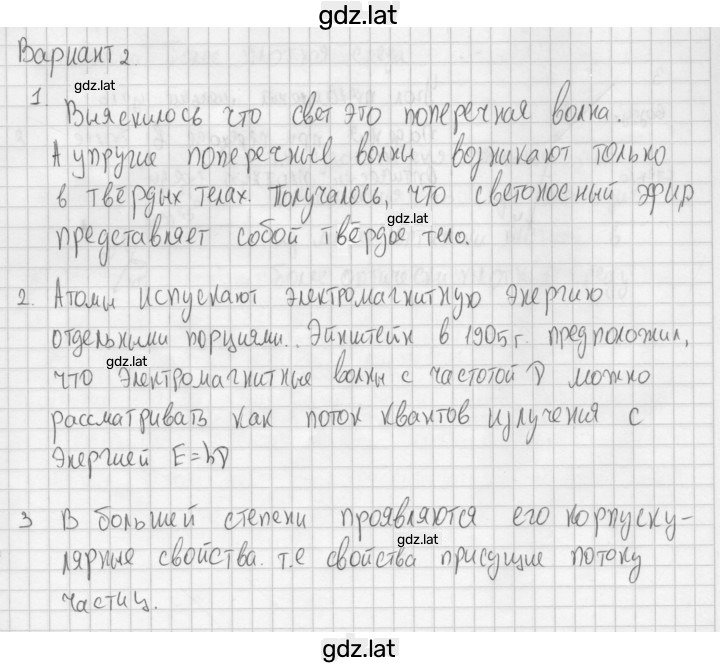 gdz.lat
Вариант 2
gdz.lat
1. Выяснилось что свет это поперечная волна.
А упругие поперечные волны возникают только
в твёрдых телах. Получалось, что светоносный эфир
gdz.lat
представляет собой твёрдое тело.
2. Атомы испускают электромагнитную энергию
отдельными порциями.. Эйнштейн в 1905 г. предположил,
gdz.lat
что электромагнитные волны с частотой ν можно
рассматривать как поток квантов излучения с
энергией E=hν
3 В большей степени проявляются его корпуску-
gdz.lat
лярные свойства. т.е свойства присущие потоку
частиц.
gdz.lat